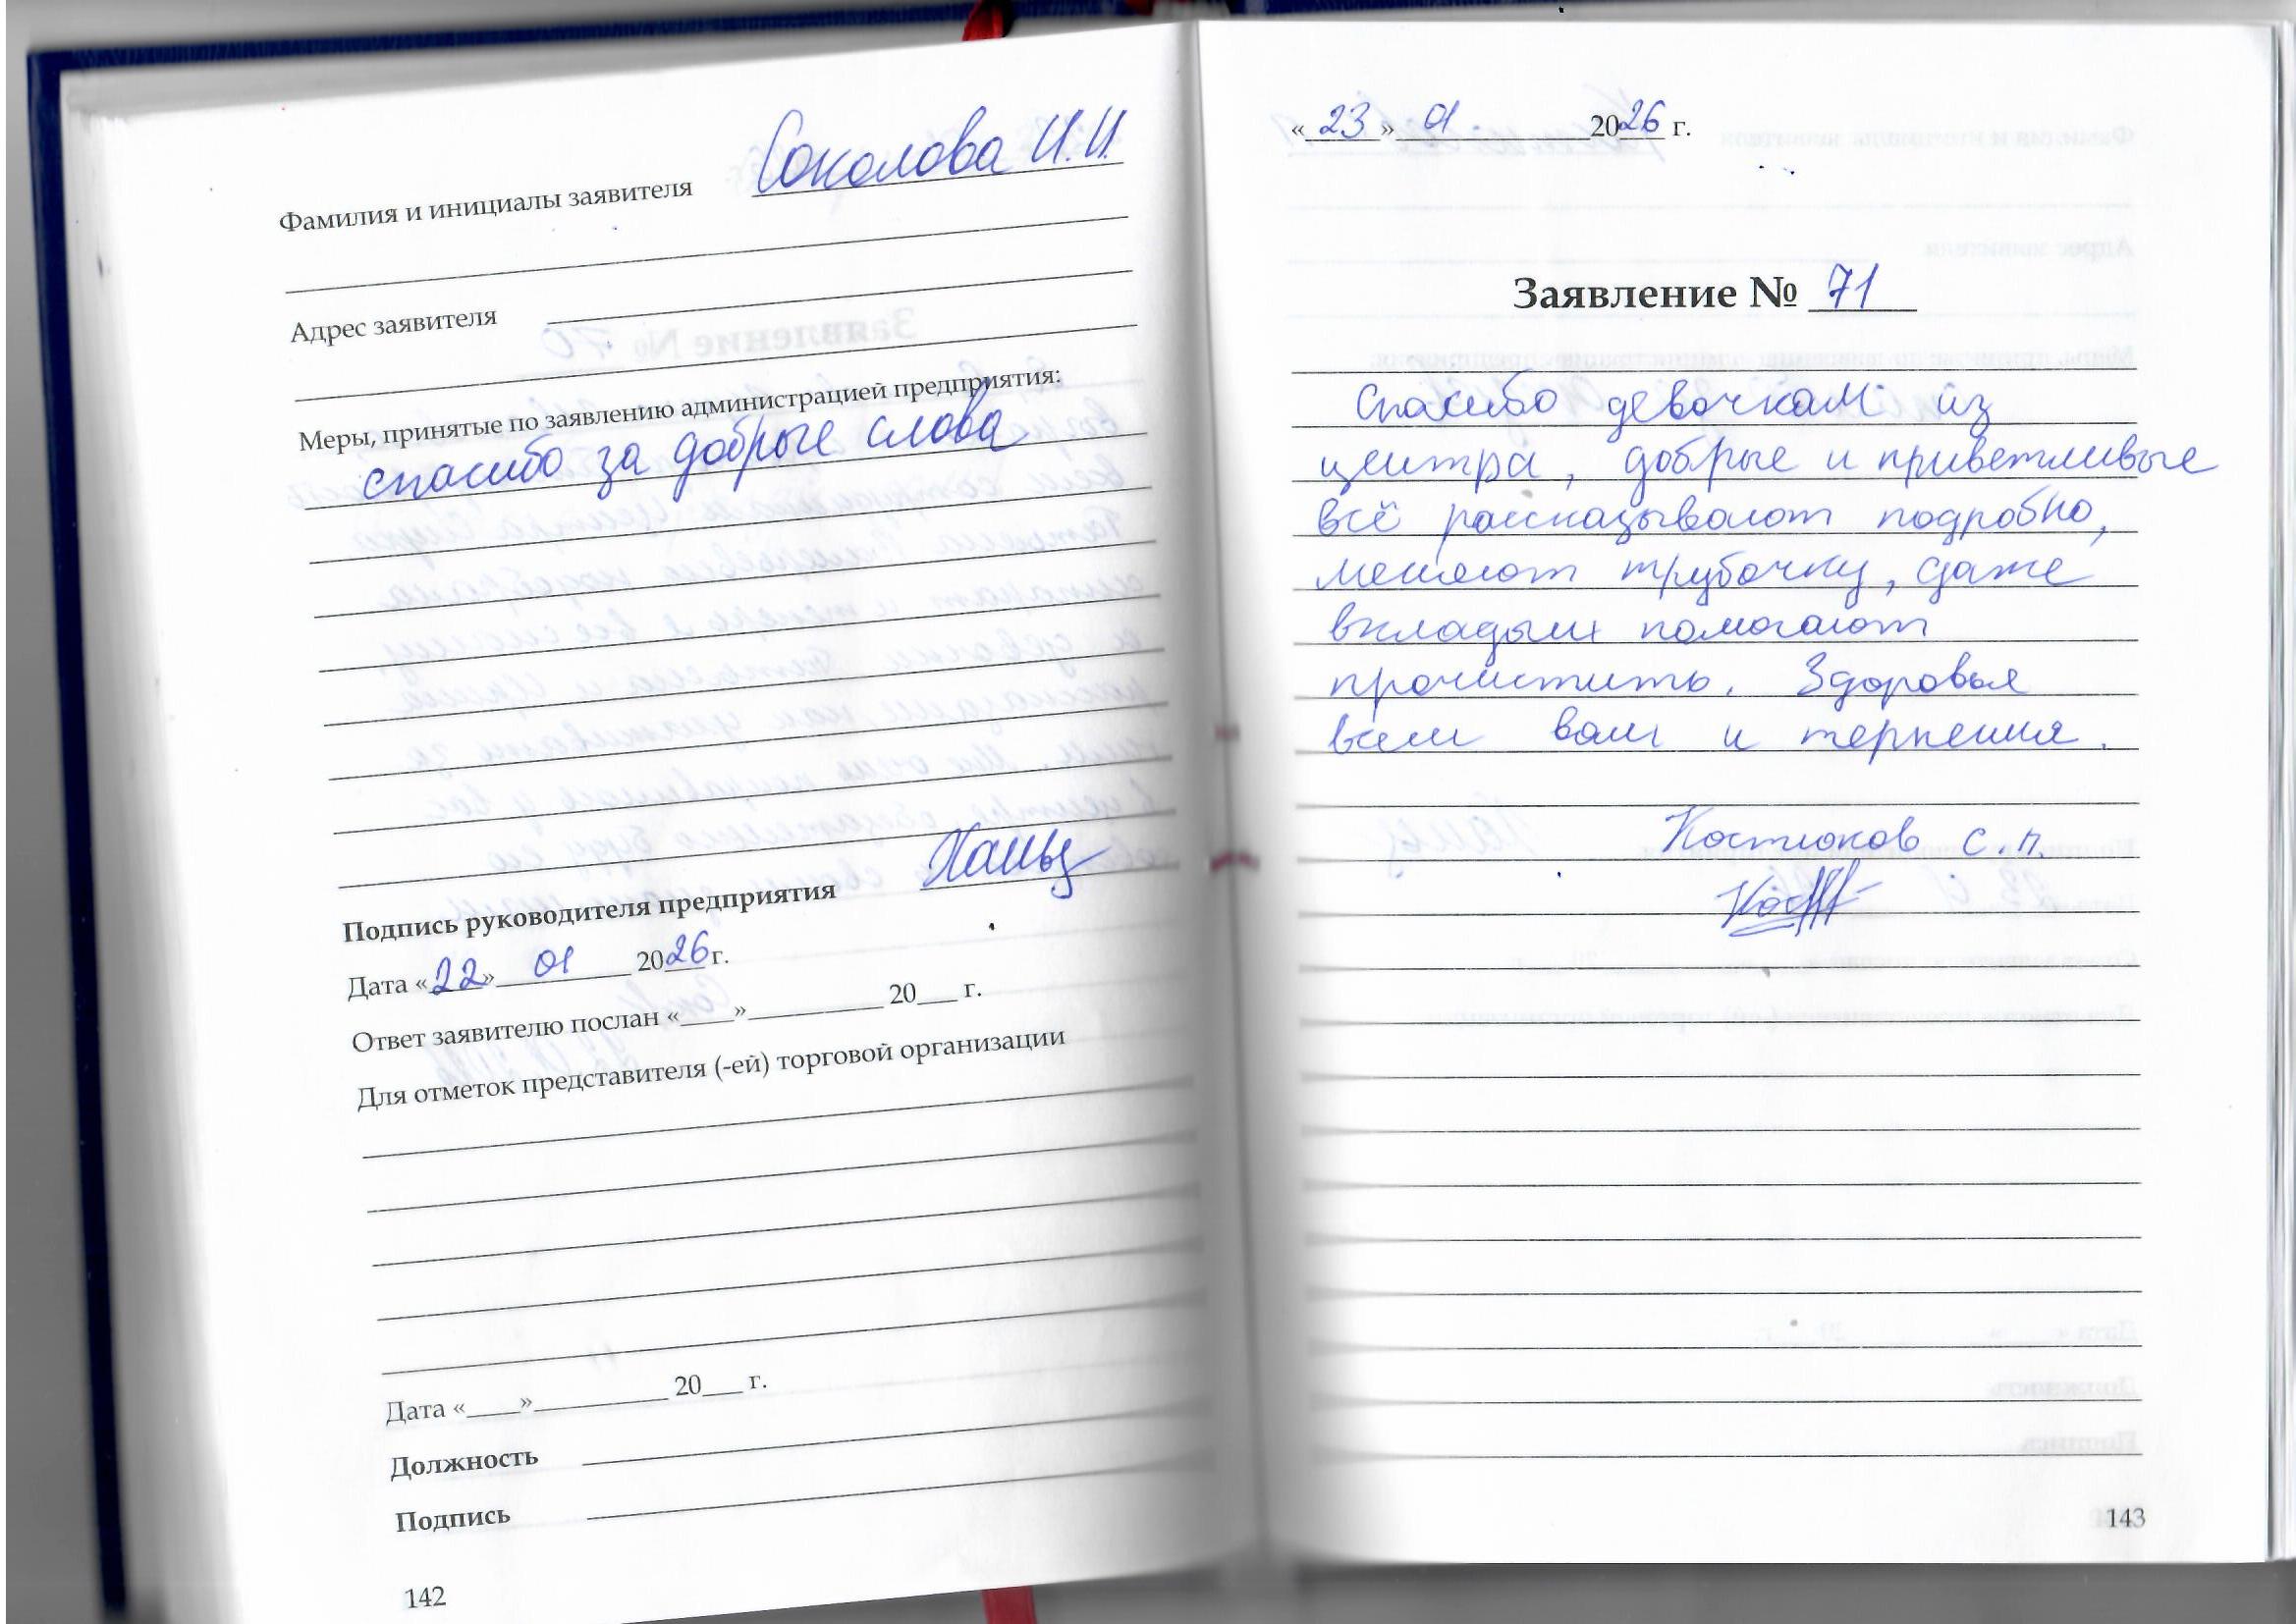 Фамилия и инициалы заявителя Соколова И.И.
Адрес заявителя
Меры, принятые по заявлению администрацией предприятия:
спасибо за добрые слова
Подпись руководителя предприятия
Дата «22» 01 2026 г.
Ответ заявителю послан «____»__________ 20___ г.
Для отметок представителя (-ей) торговой организации
Дата «____»__________ 20___ г.
Должность
Подпись
142
«23» 01. 2026 г.
Заявление № 71
Спасибо девочкам из
центра, добрые и приветливые
всё рассказывают подробно,
меняют трубочку, даже
вкладыш помогают
прочистить. Здоровья
всем вам и терпения.
Костюков С.П.
143